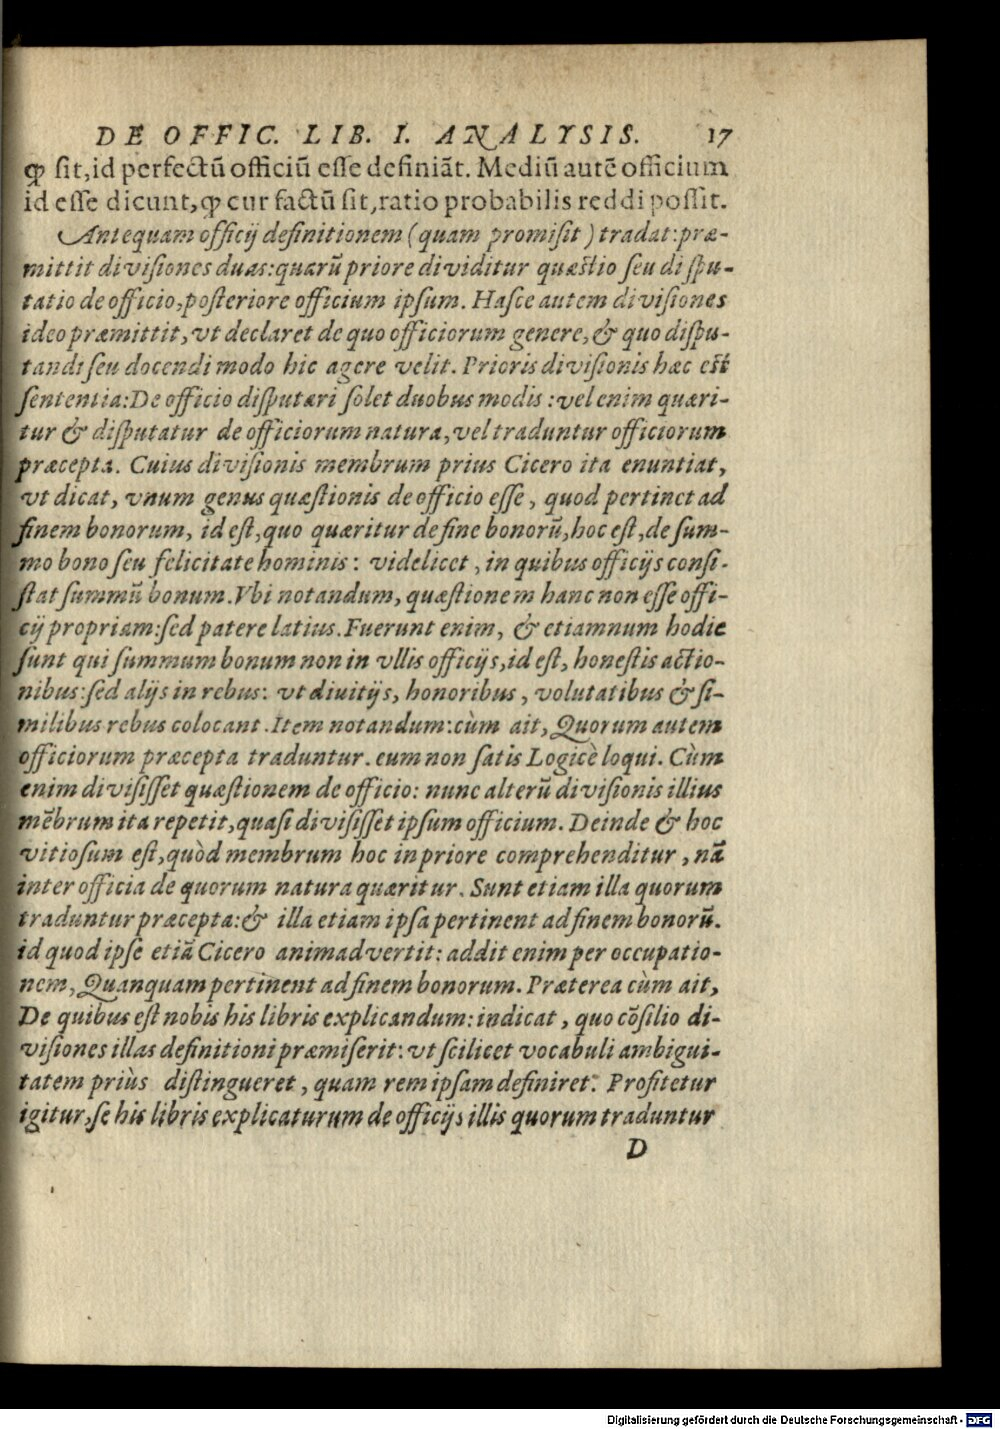 DE OFFIC. LIB. I. ANALYSIS. 17
ꝙ sit, id perfectū officiū esse definiāt. Mediū autē officium
id esse dicunt, ꝙ cur factū sit, ratio probabilis reddi possit.
Antequam officij definitionem (quam promisit) tradat: præ-
mittit divisiones duas: quarū priore dividitur quæstio seu dispu-
tatio de officio, posteriore officium ipsum. Hasce autem divisiones
ideo præmittit, vt declaret de quo officiorum genere, & quo dispu-
tandi seu docendi modo hic agere velit. Prioris divisionis hæc est
sententia: De officio disputari solet duobus modis: vel enim quæri-
tur & disputatur de officiorum natura, vel traduntur officiorum
præcepta. Cuius divisionis membrum prius Cicero ita enuntiat,
vt dicat, vnum genus quæstionis de officio esse, quod pertinet ad
finem bonorum, id est, quo quæritur de fine bonorū, hoc est, de sum-
mo bono seu felicitate hominis: videlicet, in quibus officijs consi-
stat summū bonum. Vbi notandum, quæstionem hanc non esse offi-
cij propriam: sed patere latius. Fuerunt enim, & etiamnum hodie
sunt qui summum bonum non in vllis officijs, id est, honestis actio-
nibus: sed alijs in rebus: vt divitijs, honoribus, volutatibus & si-
milibus rebus colocant. Item notandum: cùm ait, Quorum autem
officiorum præcepta traduntur. eum non satis Logicè loqui. Cùm
enim divisisset quæstionem de officio: nunc alterū divisionis illius
mēbrum ita repetit, quasi divisisset ipsum officium. Deinde & hoc
vitiosum est, quòd membrum hoc in priore comprehenditur, nā
inter officia de quorum natura quæritur. Sunt etiam illa quorum
traduntur præcepta: & illa etiam ipsa pertinent ad finem bonorū.
id quod ipse etiā Cicero animadvertit: addit enim per occupatio-
nem, Quanquam pertinent ad finem bonorum. Præterea cùm ait,
De quibus est nobis his libris explicandum: indicat, quo cōsilio di-
visiones illas definitioni præmiserit: vt scilicet vocabuli ambigui-
tatem priùs distingueret, quam rem ipsam definiret. Profitetur
igitur, se his libris explicaturum de officijs illis quorum traduntur
D
Digitalisierung gefördert durch die Deutsche Forschungsgemeinschaft - DFG